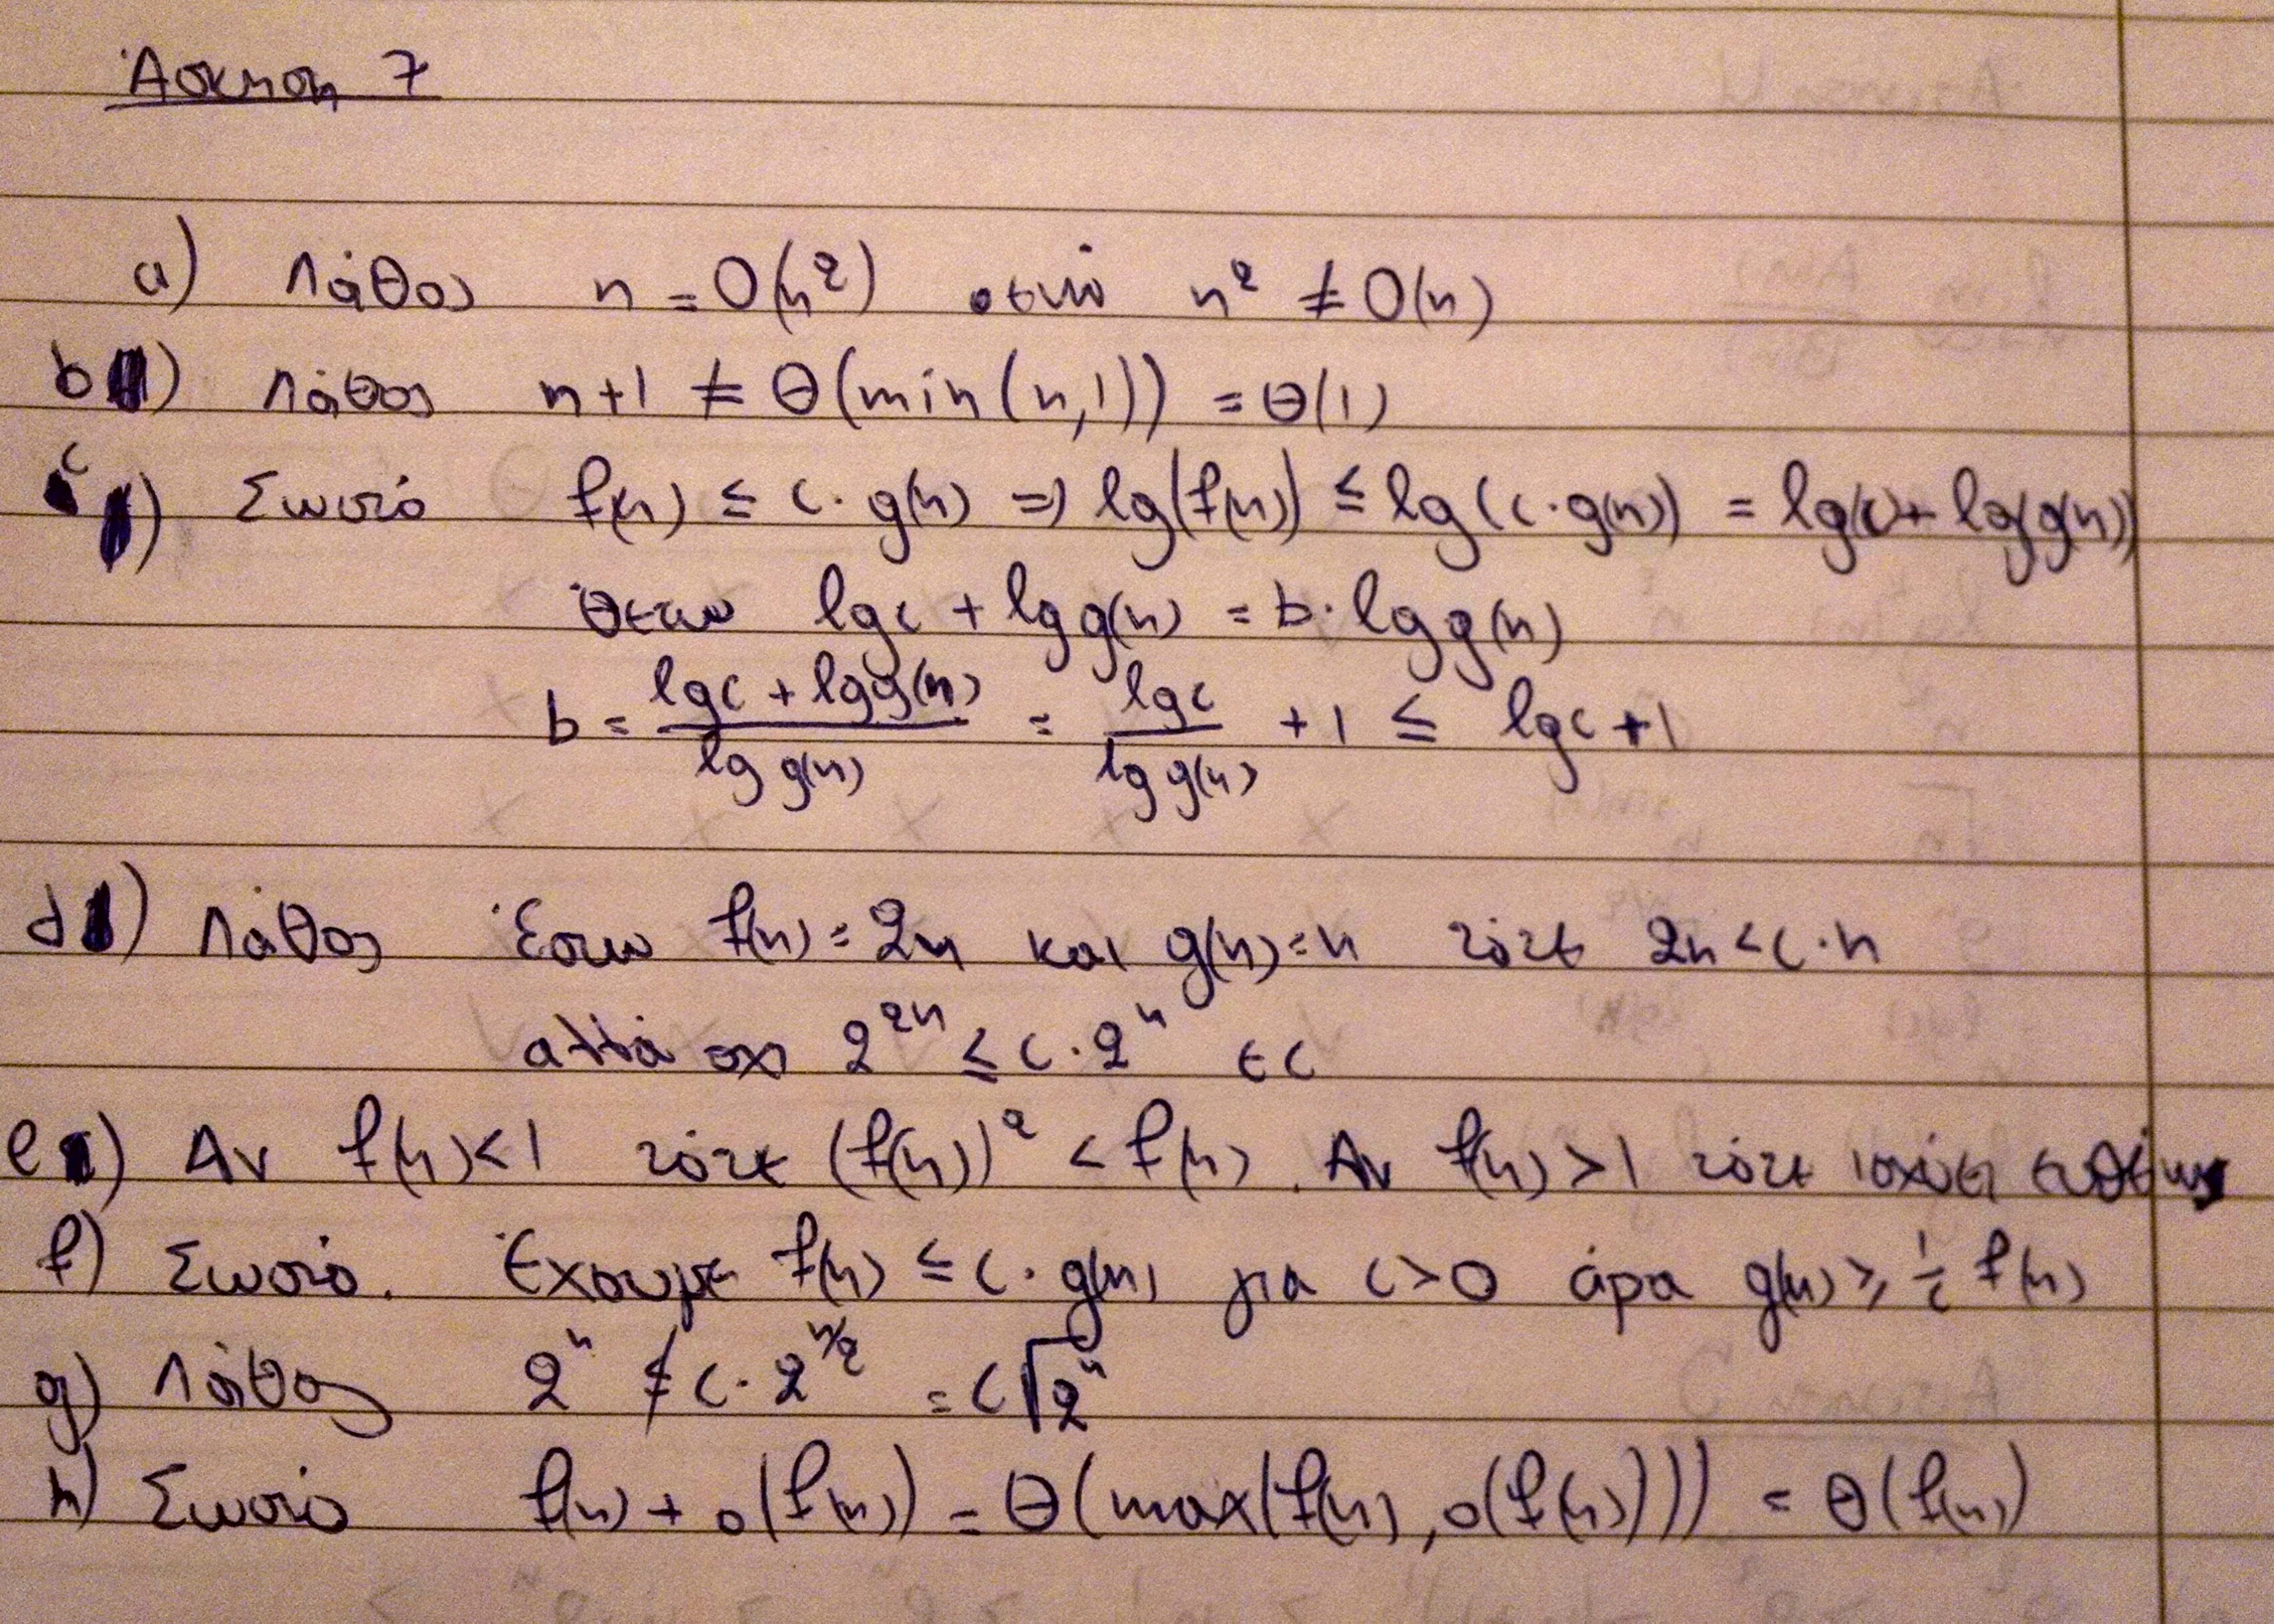 Άσκηση 7
a) Λάθος n = O(n²) ενώ n² ≠ O(n)
b) Λάθος n+1 ≠ Θ(min(n,1)) = Θ(1)
c) Σωστό f(n) ≤ c·g(n) ⇒ lg(f(n)) ≤ lg(c·g(n)) = lg(c) + lg(g(n))
Θέτω lgc + lg g(n) = b·lg g(n)
b = (lgc + lg g(n)) / lg g(n) = lgc / lg g(n) + 1 ≤ lgc + 1
d) Λάθος Έστω f(n) = 2n και g(n) = n τότε 2n < c·n
αλλά οχι 2²ⁿ ≤ c·2ⁿ
e) Αν f(n) < 1 τότε (f(n))² < f(n). Αν f(n) > 1 τότε ισχύει
f) Σωστό. Έχουμε f(n) ≤ c·g(n) για c > 0 άρα g(n) ≥ 1/c f(n)
g) Λάθος 2ⁿ ≰ c·2^(n/2) = c√2ⁿ
h) Σωστό f(n) + o(f(n)) = Θ(max(f(n), o(f(n)))) = Θ(f(n))